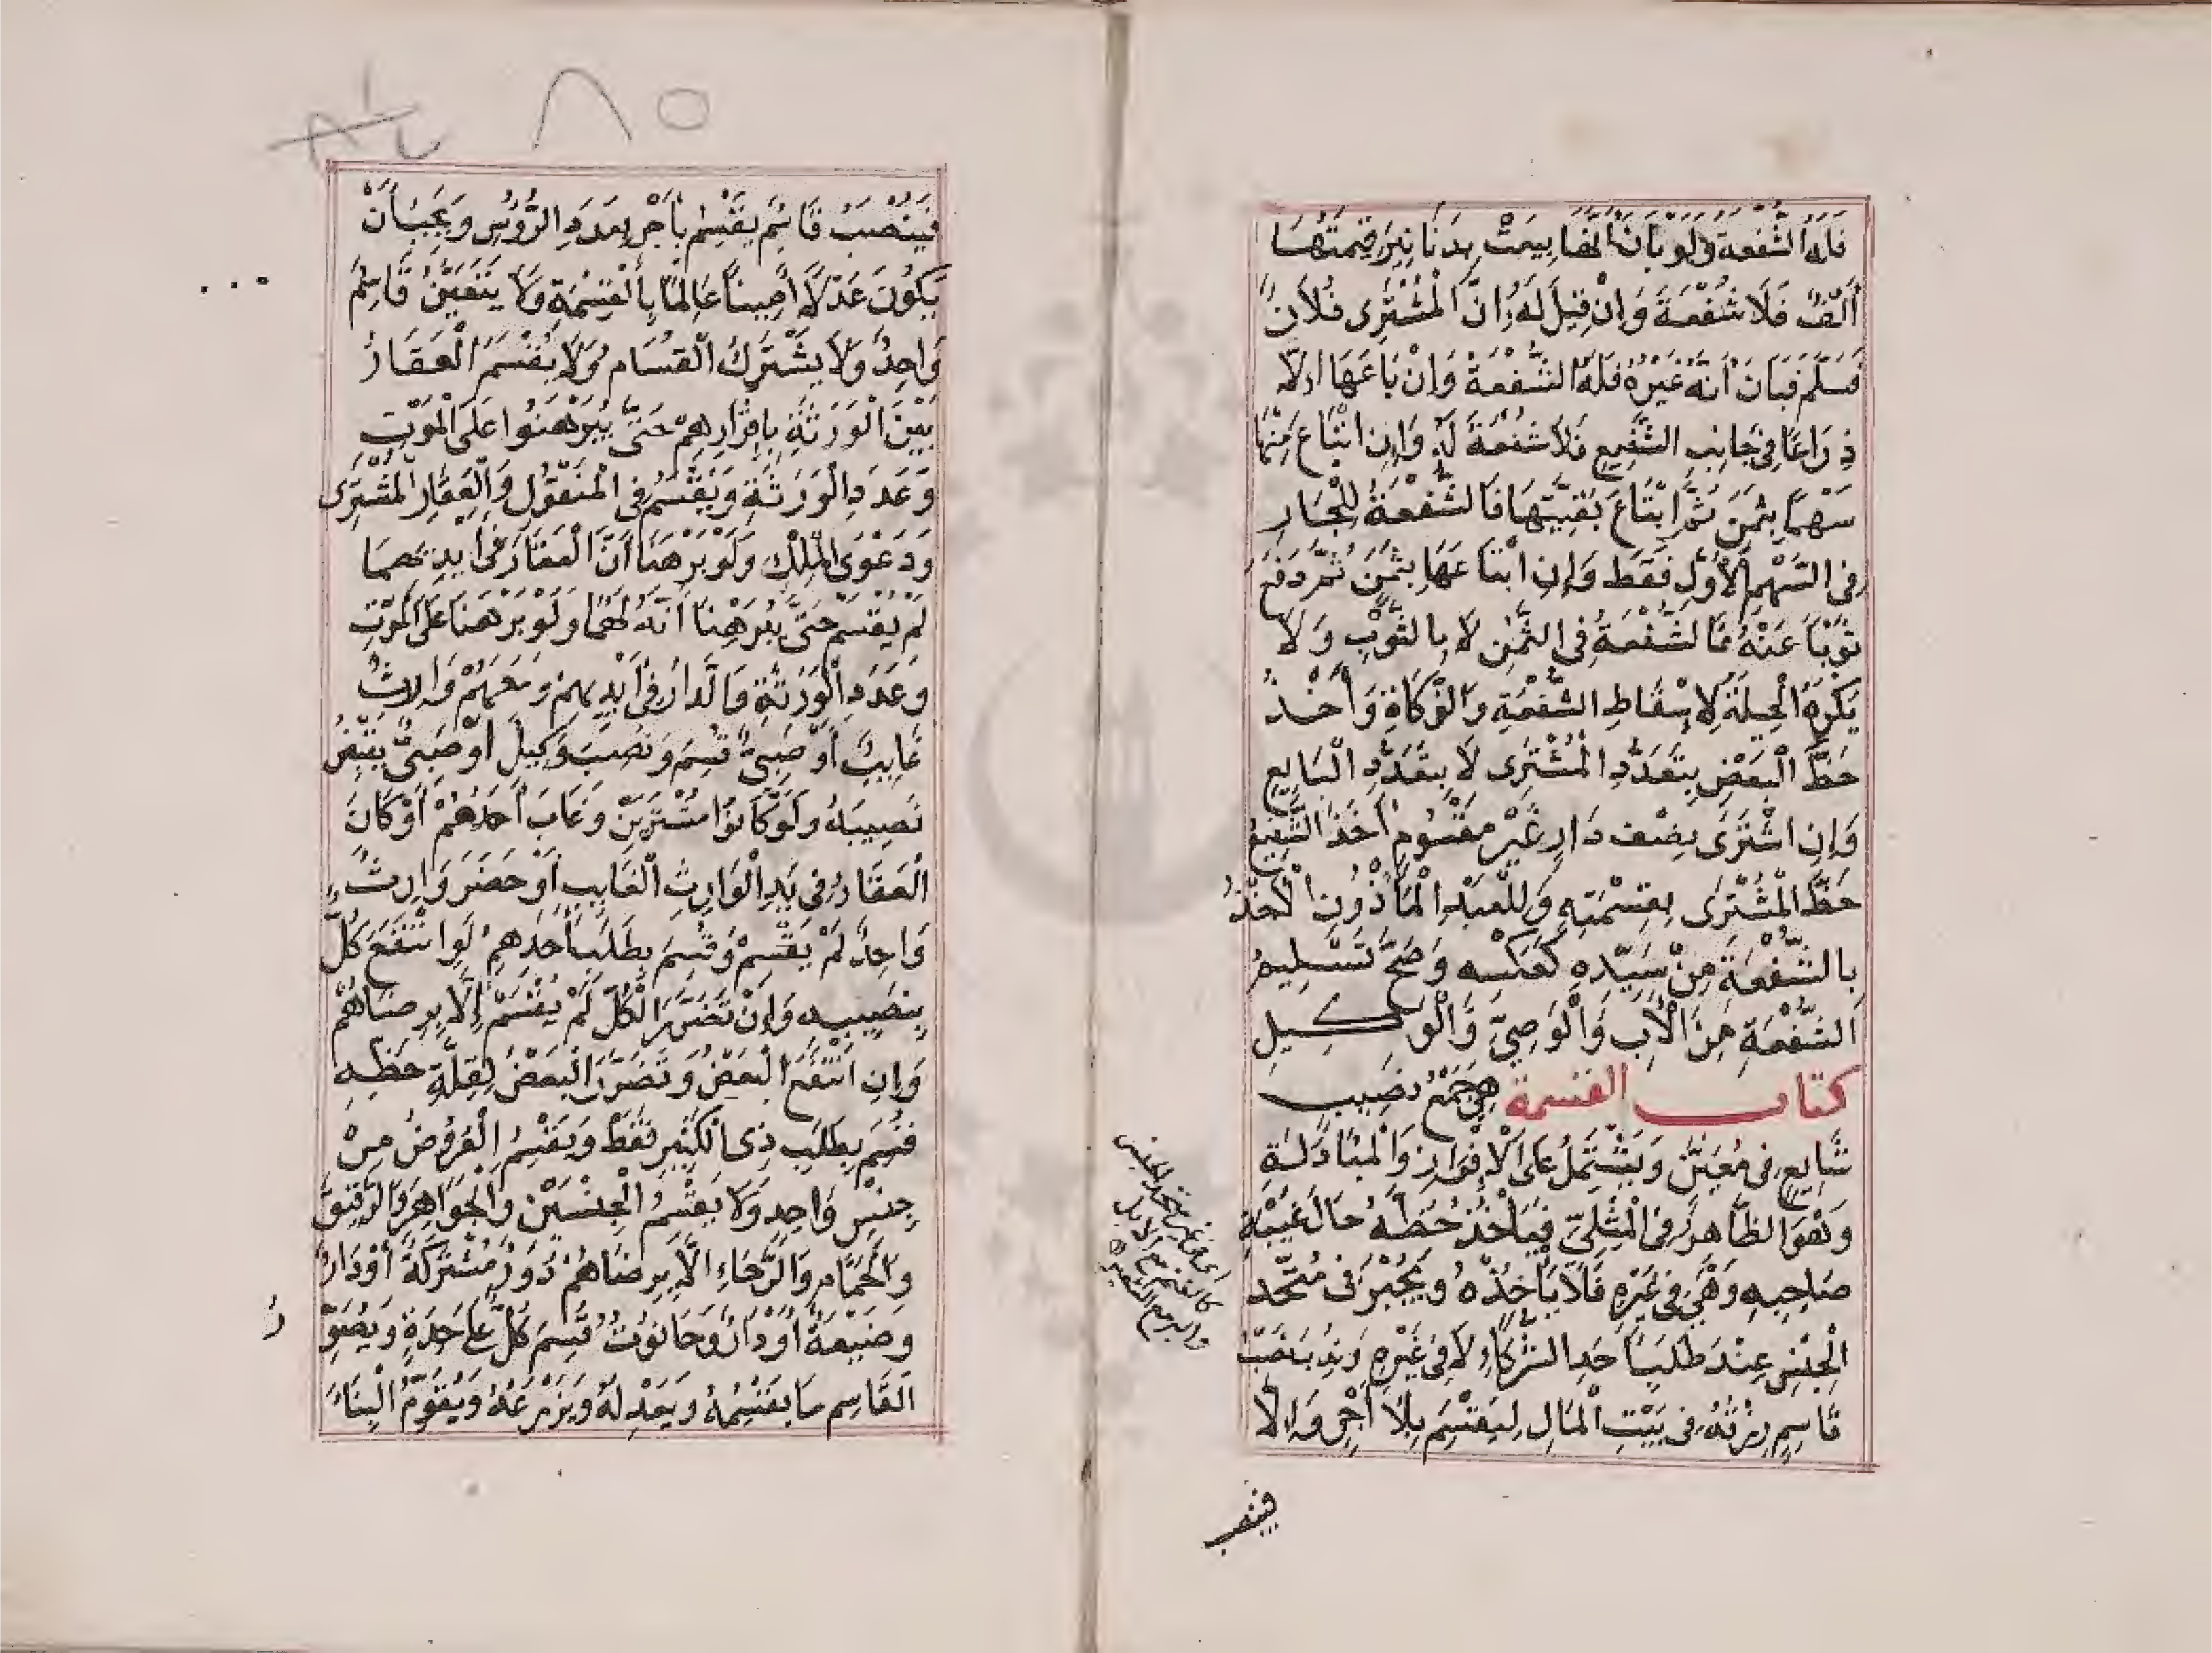 فَلَهُ الشُّفْعَةُ وَلَوْ بَانَ أَنَّهَا بِيعَتْ بِدَنَانِيرَ قِيمَتُهَا
أَلْفٌ فَلَا شُفْعَةَ وَإِنْ قِيلَ لَهُ إِنَّ الْمُشْتَرِى فُلَانٌ
فَسَلَّمَ فَبَانَ أَنَّهُ غَيْرُهُ فَلَهُ الشُّفْعَةُ وَإِنْ بَاعَهَا إِلَّا
ذِرَاعًا فِى جَانِبِ الشَّفِيعِ فَلَا شُفْعَةَ لَهُ وَإِنِ ابْتَاعَ مِنْهَا
سَهْمًا بِثَمَنٍ ثُمَّ ابْتَاعَ بَقِيَّتَهَا فَالشُّفْعَةُ لِلْجَارِ
فِى السَّهْمِ الْأَوَّلِ فَقَطْ وَإِنِ ابْتَاعَهَا بِثَمَنٍ ثُمَّ دَفَعَ
ثَوْبًا عَنْهُ فَالشُّفْعَةُ فِى الثَّمَنِ لَا بِالثَّوْبِ وَلَا
يُكْرَهُ الْحِيلَةُ لِإِسْقَاطِ الشُّفْعَةِ وَالزَّكَاةِ وَأَخْذُ
حَظِّ الْبَعْضِ بِتَعَدُّدِ الْمُشْتَرِى لَا بِتَعَدُّدِ الْبَايِعِ
وَإِنِ اشْتَرَى نِصْفَ دَارٍ غَيْرِ مَقْسُومٍ أَخَذَ الشَّفِيعُ
حَظَّ الْمُشْتَرِى بِقِسْمَتِهِ وَلِلْعَبْدِ الْمَأْذُونِ الْأَخْذُ
بِالشُّفْعَةِ مِنْ سَيِّدِهِ كَعَكْسِهِ وَصَحَّ تَسْلِيمُ
الشُّفْعَةِ مِنَ الْأَبِ وَالْوَصِيِّ وَالْوَكِيلِ
كتاب القسمة هِيَ جَمْعُ نَصِيبٍ
شَايِعٍ فِى مُعَيَّنٍ وَيَشْتَمِلُ عَلَى الْإِفْرَازِ وَالْمُبَادَلَةِ
وَهُوَ الظَّاهِرُ فِى الْمِثْلِيِّ فَيَأْخُذُ حَظَّهُ حَالَ غَيْبَةِ
صَاحِبِهِ وَهِيَ فِى غَيْرِهِ فَلَا يَأْخُذُهُ وَيُجْبَرُ فِى مُتَّحِدِ
الْجِنْسِ عِنْدَ طَلَبِ أَحَدِ الشُّرَكَاءِ لَا فِى غَيْرِهِ وَنُدِبَ نَصْبُ
قَاسِمٍ رِزْقُهُ فِى بَيْتِ الْمَالِ لِيَقْسِمَ بِلَا أَجْرٍ وَإِلَّا
فينصب
٨٥
فَيُنْصَبُ قَاسِمٌ يَقْسِمُ بِأَجْرٍ بِعَدَدِ الرُّؤُسِ وَيَجِبُ أَنْ
يَكُونَ عَدْلًا أَمِينًا عَالِمًا بِالْقِسْمَةِ وَلَا يَتَعَيَّنُ قَاسِمٌ
وَاحِدٌ وَلَا يَشْتَرِكُ الْقُسَّامُ وَلَا يُقْسَمُ الْعَقَارُ
بَيْنَ الْوَرَثَةِ بِإِقْرَارِهِمْ حَتَّى يُبَرْهِنُوا عَلَى الْمَوْتِ
وَعَدَدِ الْوَرَثَةِ وَيُقْسَمُ فِى الْمَنْقُولِ وَالْعَقَارِ الْمُشْتَرَى
وَدَعْوَى الْمِلْكِ وَلَوْ بَرْهَنَا أَنَّ الْعَقَارَ فِى أَيْدِيهِمَا
لَمْ يُقْسَمْ حَتَّى يُبَرْهِنَا أَنَّهُ لَهُمَا وَلَوْ بَرْهَنَا عَلَى الْمَوْتِ
وَعَدَدِ الْوَرَثَةِ وَالدَّارُ فِى أَيْدِيهِمْ وَمَعَهُمْ وَارِثٌ
غَايِبٌ أَوْ صَبِيٌّ قُسِمَ وَنُصِبَ وَكِيلٌ أَوْ صَبِيٌّ يَقْبِضُ
نَصِيبَهُ وَلَوْ كَانُوا مُشْتَرِينَ وَغَابَ أَحَدُهُمْ أَوْ كَانَ
الْعَقَارُ فِى يَدِ الْوَارِثِ الْغَايِبِ أَوْ حَضَرَ وَارِثٌ
وَاحِدٌ لَمْ يُقْسَمْ وَقُسِمَ بِطَلَبِ أَحَدِهِمْ لَوِ انْتَفَعَ كُلٌّ
بِنَصِيبِهِ وَإِنْ تَضَرَّرَ الْكُلُّ لَمْ يُقْسَمْ إِلَّا بِرِضَاهُمْ
وَإِنِ انْتَفَعَ الْبَعْضُ وَتَضَرَّرَ الْبَعْضُ لِقِلَّةِ حَظِّهِ
قُسِمَ بِطَلَبِ ذِى الْكَثِيرِ فَقَطْ وَيُقْسَمُ الْعُرُوضُ مِنْ
جِنْسٍ وَاحِدٍ وَلَا يُقْسَمُ الْجِنْسَيْنِ وَالْجَوَاهِرُ وَالرَّقِيقُ
وَالْحَمَّامُ وَالرَّحَاءُ إِلَّا بِرِضَاهُمْ دُورٌ مُشْتَرَكَةٌ أَوْ دَارٌ
وَضَيْعَةٌ أَوْ دَارٌ وَحَانُوتٌ قُسِمَ كُلٌّ عَلَى حَدَةٍ وَيُصَوِّرُ
الْقَاسِمُ مَا يَقْسِمُهُ وَيَعْدِلُهُ وَيَزْرَعُهُ وَيُقَوِّمُ الْبِنَاءَ